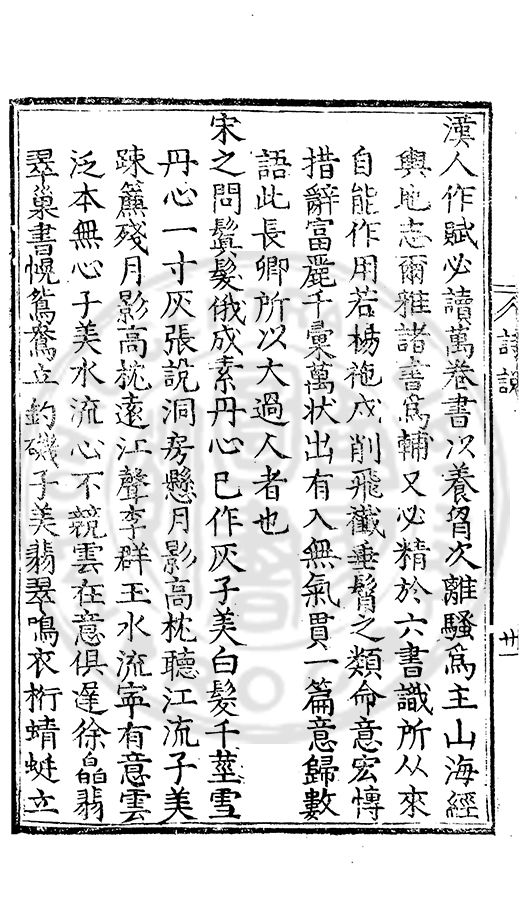 漢人作賦必讀萬卷書以養胷次離騷為主山海經
輿地志爾雅諸書為輔又必精於六書識所从來
自能作用若楊袘戍削飛襳垂髾之類命意宏博
措辭富麗千彙萬状出有入無氣貫一篇意歸數
語此長卿所以大過人者也
宋之問鬂髮俄成素丹心已作灰子美白髮千莖雪
丹心一寸灰張說洞房懸月影高枕聽江流子美
踈簾殘月影高枕遠江聲李群玉水流寧有意雲
泛本無心子美水流心不競雲在意俱遲徐晶翡
翠巢書幌鴛鴦立釣磯子美翡翠鳴衣桁蜻蜓立
詩說
廿